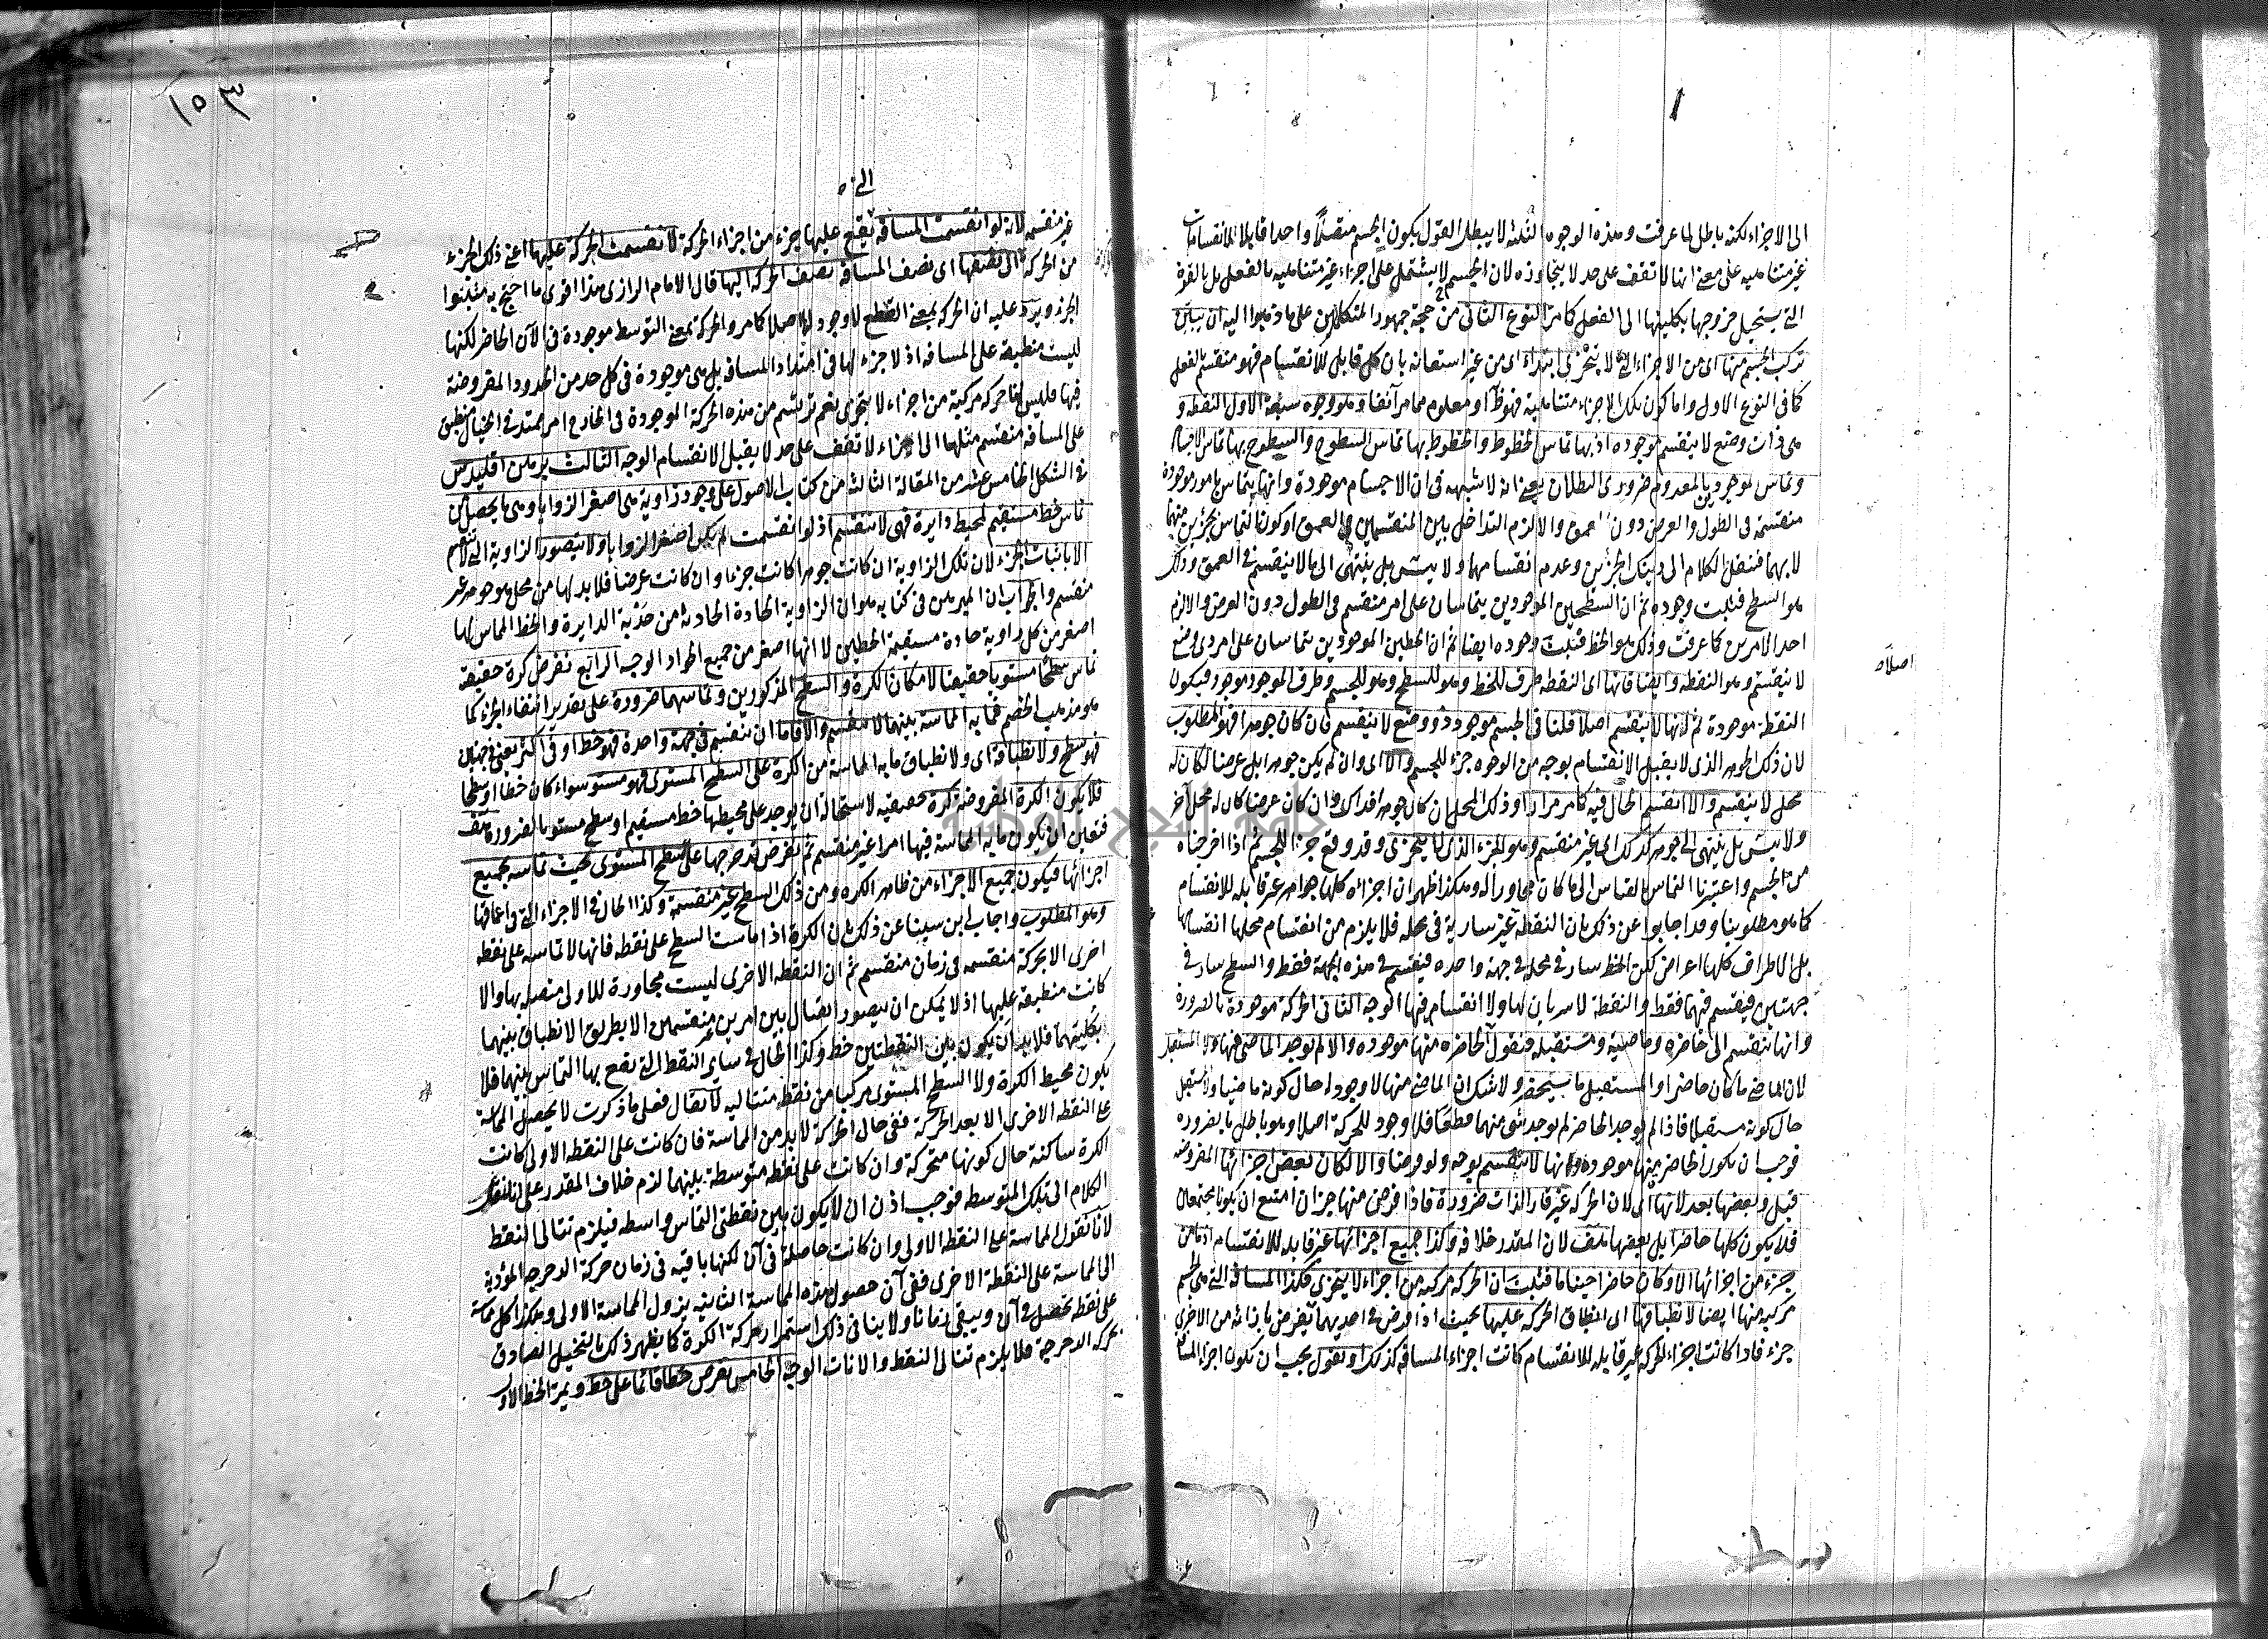 الى الاجزاء لكنه باطل لما عرفت وهذه الوجوه الثلثة لا يبطل القول بكون الجسم متصلا واحدا قابلا لانقسامات
غير متناهية على معنى انها لا تقف على حد لا يتجاوزه لان الجسم لا يشتمل على اجزاء غير متناهية بالفعل بل بالقوة
التى يستحيل خروجها بكليتها الى الفعل كما مر النوع الثانى من حجة جمهور المتكلمين على ما ذهبوا اليه ان يبين
تركب الجسم منها اى من الاجزاء التى لا يتجزى ابتداء اى من غير استعانة بان كل قابل للانقسام فهو منقسم بالفعل
كما فى النوع الاول واما كون تلك الاجزاء متناهية فهو ظ او معلوم مما مر آنفا وهو وجوه سبعة الاول النقطة و
هى ذات وضع لا ينقسم موجودة اذ بها تماس الخطوط والخطوط بها تماس السطوح والسطوح بها تماس الاجسام
وتماس الموجود بالمعدوم ضرورى البطلان يعنى انه لا شبهة فى ان الاجسام موجودة وانها يتماس بامور موجودة
منقسمة فى الطول والعرض دون العمق والا لزم التداخل بين المنقسمين فى العمق او كون التماس بجزئين منهما
لا بهما فننقل الكلام الى ذينك الجزئين وعدم انقسامهما ولا يتس بل ينتهى الى ما لا ينقسم فى العمق وذلك
هو السطح فثبت وجوده ثم ان السطحين الموجودين يتماسان على امر منقسم فى الطول دون العرض والا لزم
احد الامرين كما عرفت وذلك هو الخط فثبت وجوده ايضا ثم ان الخطين الموجودين يتماسان على امر ذى وضع
لا ينقسم وهو النقطة وايضا فانها اى النقطة طرف للخط وهو للسطح وهو للجسم وطرف الموجود موجود فيكون
النقطة موجودة ثم انها لا ينقسم اصلا قلنا فى الجسم موجود ذو وضع لا ينقسم فان كان جوهرا فهو المطلوب
لان ذلك الجوهر الذى لا يقبل الانقسام بوجه من الوجوه جزء للجسم والا اى وان لم يكن جوهرا بل عرضا لكان له
محل لا ينقسم والا انقسم الحال فيه كما مر مرارا وذلك المحل ان كان جوهرا فذاك وان كان عرضا كان له محل آخر
ولا يتس بل ينتهى الى جوهر كذلك اى غير منقسم وهو الجزء الذى لا يتجزى وقد وقع جزءا للجسم ثم اذا اخرجناه
من الجسم واعتبرنا التماس بالقياس الى ما كان مجاورا له وهكذا ظهر ان اجزاءه كلها جواهر غير قابلة للانقسام
كما هو مطلوبنا وقد اجابوا عن ذلك بان النقطة غير سارية فى محله فلا يلزم من انقسام محلها انقسامها
بل الاطراف كلها اعراض لكن الخط سار فى محله فى جهة واحدة فينقسم فى هذه الجهة فقط والسطح سار فى
جهتين فينقسم فيهما فقط والنقطة لا سريان لها ولا انقسام فيها الوجه الثانى الحركة موجودة بالضرورة
وانها ينقسم الى حاضرة وماضية ومستقبلة فنقول الحاضرة منها موجودة والا لم توجد الماضى منها ولا المستقبل
لان الماضى ما كان حاضرا والمستقبل ما سيحضر ولا شك ان الماضى منها لا وجود له حال كونه ماضيا ولا مستقبل
حال كونه مستقبلا فاذا لم يوجد الحاضر لم يوجد شئ منهما قطعا فلا وجود للحركة اصلا وهو باطل بالضرورة
فوجب ان يكون الحاضر منها موجودة وانها لا تنقسم بوجه ولو فرضا والا لكان بعض اجزائها المفروضة
قبل وبعضها بعد لانها اى لان الحركة غير قار الذات ضرورة فاذا فرض منها جزءان امتنع ان يكونا مجتمعان
فلا يكون كلها حاضرا بل بعضها هف لان المقدر خلافه وكذا جميع اجزائها غير قابلة للانقسام اذ ما من
جزء من اجزائها الا وكان حاضرا حينا ما فثبت ان الحركة مركبة من اجزاء لا يتجزى فكذا المسافة التى هى الجسم
مركبة منها ايضا لانطباقها اى انطباق الحركة عليها بحيث اذا فرض فى احديهما يفرض بازائه من الاخرى
جزء فاذا كانت اجزاء الحركة غير قابلة للانقسام كانت اجزاء المسافة كذلك او نقول يجب ان تكون اجزاء المسافة
اصلاه
١٥٣
غير منقسمة لانه لو انقسمت المسافة التى يقع عليها جزء من اجزاء الحركة لانقسمت الحركة عليها اعنى ذلك الجزء
من الحركة الى نصفها اى نصف المسافة نصف الحركة اليها قال الامام الرازى هذا اقوى ما احتج به مثبتوا
الجزء ويرد عليه ان الحركة بمعنى القطع لا وجود لها اصلا كما مر والحركة بمعنى التوسط موجودة فى الآن الحاضر لكنها
ليست منطبقة على المسافة اذ لا جزء لها فى امتداد المسافة بل هى موجودة فى كل حد من الحدود المفروضة
فيها فليس لنا حركة مركبة من اجزاء لا يتجزى نعم ترتسم من هذه الحركة الموجودة فى الخارج امر ممتد فى الخيال منطبق
على المسافة منقسم مثلها الى اجزاء لا تقف على حد لا يقبل الانقسام الوجه الثالث برهن اقليدس
فى الشكل الخامس عشر من المقالة الثالثة من كتاب الاصول على وجود زاوية هى اصغر الزوايا وهى ما يحصل من
تماس خط مستقيم لمحيط دايرة فهى لا تنقسم اذ لو انقسمت لم يكن اصغر الزوايا ولا يتصور الزاوية التى لا تنقسم
الا باثبات الجزء لان تلك الزاوية ان كانت جوهرا كانت جزءا وان كانت عرضا فلا بد لها من محل هو جوهر غير
منقسم والجواب ان المبرهن فى كتابه هو ان الزاوية الحادة الحادثة من حدبة الدايرة والخط المماس لها
اصغر من كل زاوية حادة مستقيمة الخطين لا انها اصغر من جميع الحواد الوجه الرابع نفرض كرة حقيقة
تماس سطحا مستويا حقيقيا لامكان الكرة والسطح المذكورين وتماسهما ضرورة على تقدير انتفاء الجزء كما
هو مذهب الخصم فما به المماسة بينهما لا ينقسم والا فاما ان ينقسم فى جهة واحدة فهو خط او فى اكثر يعنى فى جهتين
فهو سطح ولانطباقه اى ولانطباق ما به المماسة من الكرة على السطح المستوى فهو مستو سواء كان خطا او سطحا
فلا يكون الكرة المفروضة كرة حقيقية لاستحالة ان يوجد على محيطها خط مستقيم او سطح مستو بالضرورة هف
فتعين ان يكون ما به المماسة فيها امرا غير منقسم ثم نفرض تدحرجها على السطح المستوى بحيث تماسه بجميع
اجزائها فيكون جميع الاجزاء من ظاهر الكرة ومن ذلك السطح غير منقسمة وكذا الحال فى الاجزاء التى فى اعماقها
وهو المطلوب واجاب ابن سينا عن ذلك بان الكرة اذا ماست السطح على نقطة فانها لا تماسه على نقطة
اخرى الا بحركة منقسمة فى زمان منقسم ثم ان النقطة الاخرى ليست مجاورة للاولى متصلة بها والا
كانت منطبقة عليها اذ لا يمكن ان يتصور اتصال بين امرين غير منقسمين الا بطريق الانطباق بينهما
بكليتهما فلا بد ان يكون بين النقطتين خط وكذا الحال فى سائر النقط التى تقع بها التماس بينهما فلا
يكون محيط الكرة ولا السطح المستوى مركبا من نقط متتالية لا يقال فعلى ما ذكرت لا يحصل المماسة
على النقطة الاخرى الا بعد الحركة ففى حال الحركة لا بد من المماسة فان كانت على النقطة الاولى كانت
الكرة ساكنة حال كونها متحركة وان كانت على نقطة متوسطة بينهما لزم خلاف المقدر على انا ننقل
الكلام الى تلك المتوسطة فوجب اذن ان لا يكون بين نقطتى التماس واسطة فيلزم تتالى النقط
لانا نقول المماسة على النقطة الاولى وان كانت حاصلة فى آن لكنها باقية فى زمان حركة الدحرجة المؤدية
الى المماسة على النقطة الاخرى ففى آن حصول هذه المماسة الثانية يزول المماسة الاولى وهكذا كل مماسة
على نقطة تحصل فى آن ويبقى زمانا ولا ينافى ذلك استمرار حركة الكرة كما يظهر ذلك بالتخيل الصادق
بحركة الدحرجة فلا يلزم تتالى النقط والآنات الوجه الخامس نفرض خطا قائما على خط ويمر الخط الاول